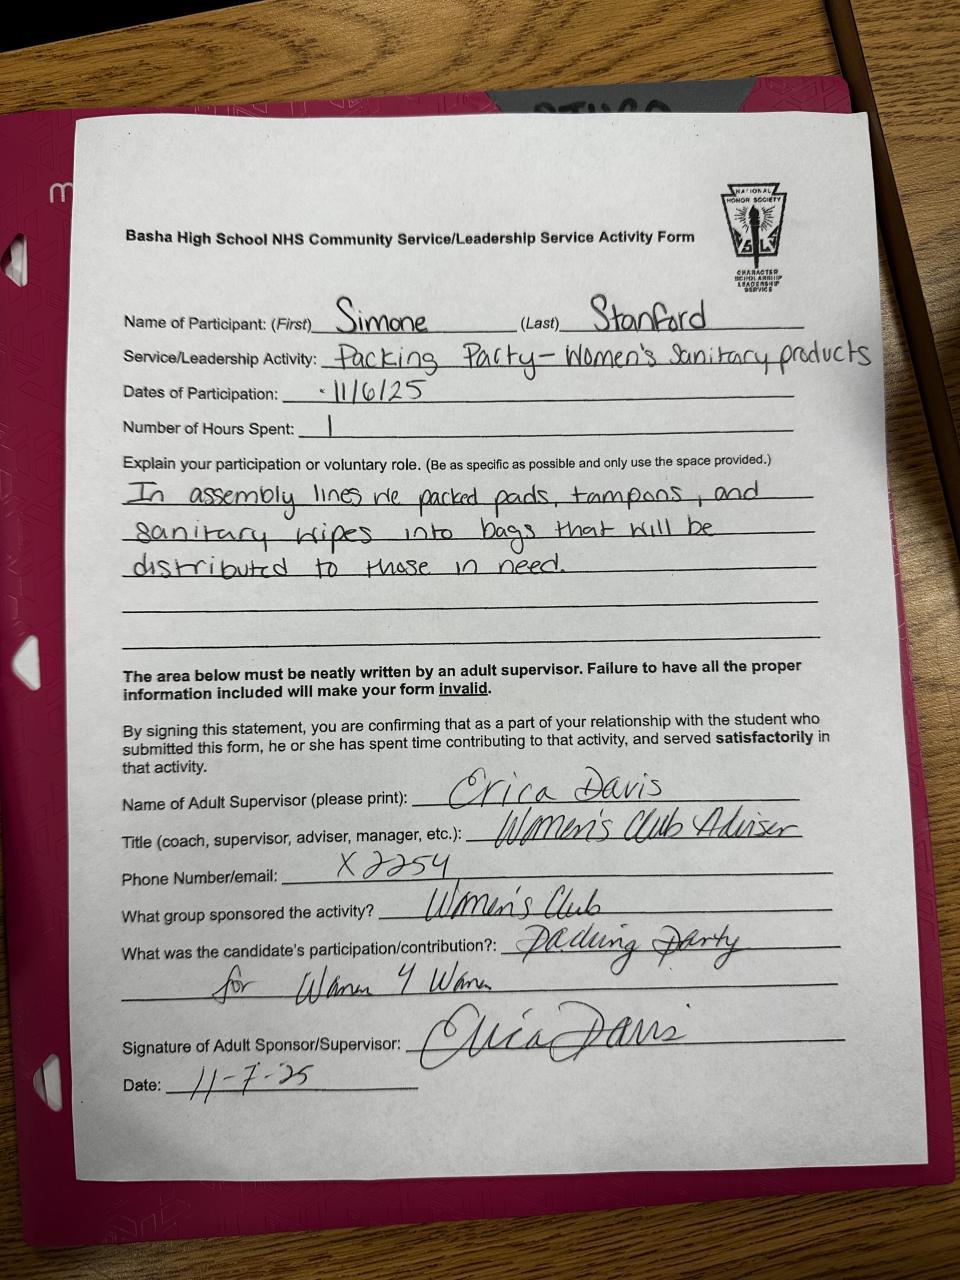 NATIONAL
HONOR SOCIETY
S L
CHARACTER
SCHOLARSHIP
LEADERSHIP
SERVICE
m
Basha High School NHS Community Service/Leadership Service Activity Form
Name of Participant: (First) Simone (Last) Stanford
Service/Leadership Activity: Packing Party - Women's Sanitary products
Dates of Participation: 11/6/25
Number of Hours Spent: 1
Explain your participation or voluntary role. (Be as specific as possible and only use the space provided.)
In assembly lines we packed pads, tampons, and
sanitary wipes into bags that will be
distributed to those in need.
The area below must be neatly written by an adult supervisor. Failure to have all the proper
information included will make your form invalid.
By signing this statement, you are confirming that as a part of your relationship with the student who
submitted this form, he or she has spent time contributing to that activity, and served satisfactorily in
that activity.
Name of Adult Supervisor (please print): Erica Davis
Title (coach, supervisor, adviser, manager, etc.): Women's Club Adviser
Phone Number/email: X2254
What group sponsored the activity? Women's Club
What was the candidate's participation/contribution?: Packing Party
for Women 4 Women
Signature of Adult Sponsor/Supervisor: Erica Davis
Date: 11-7-25